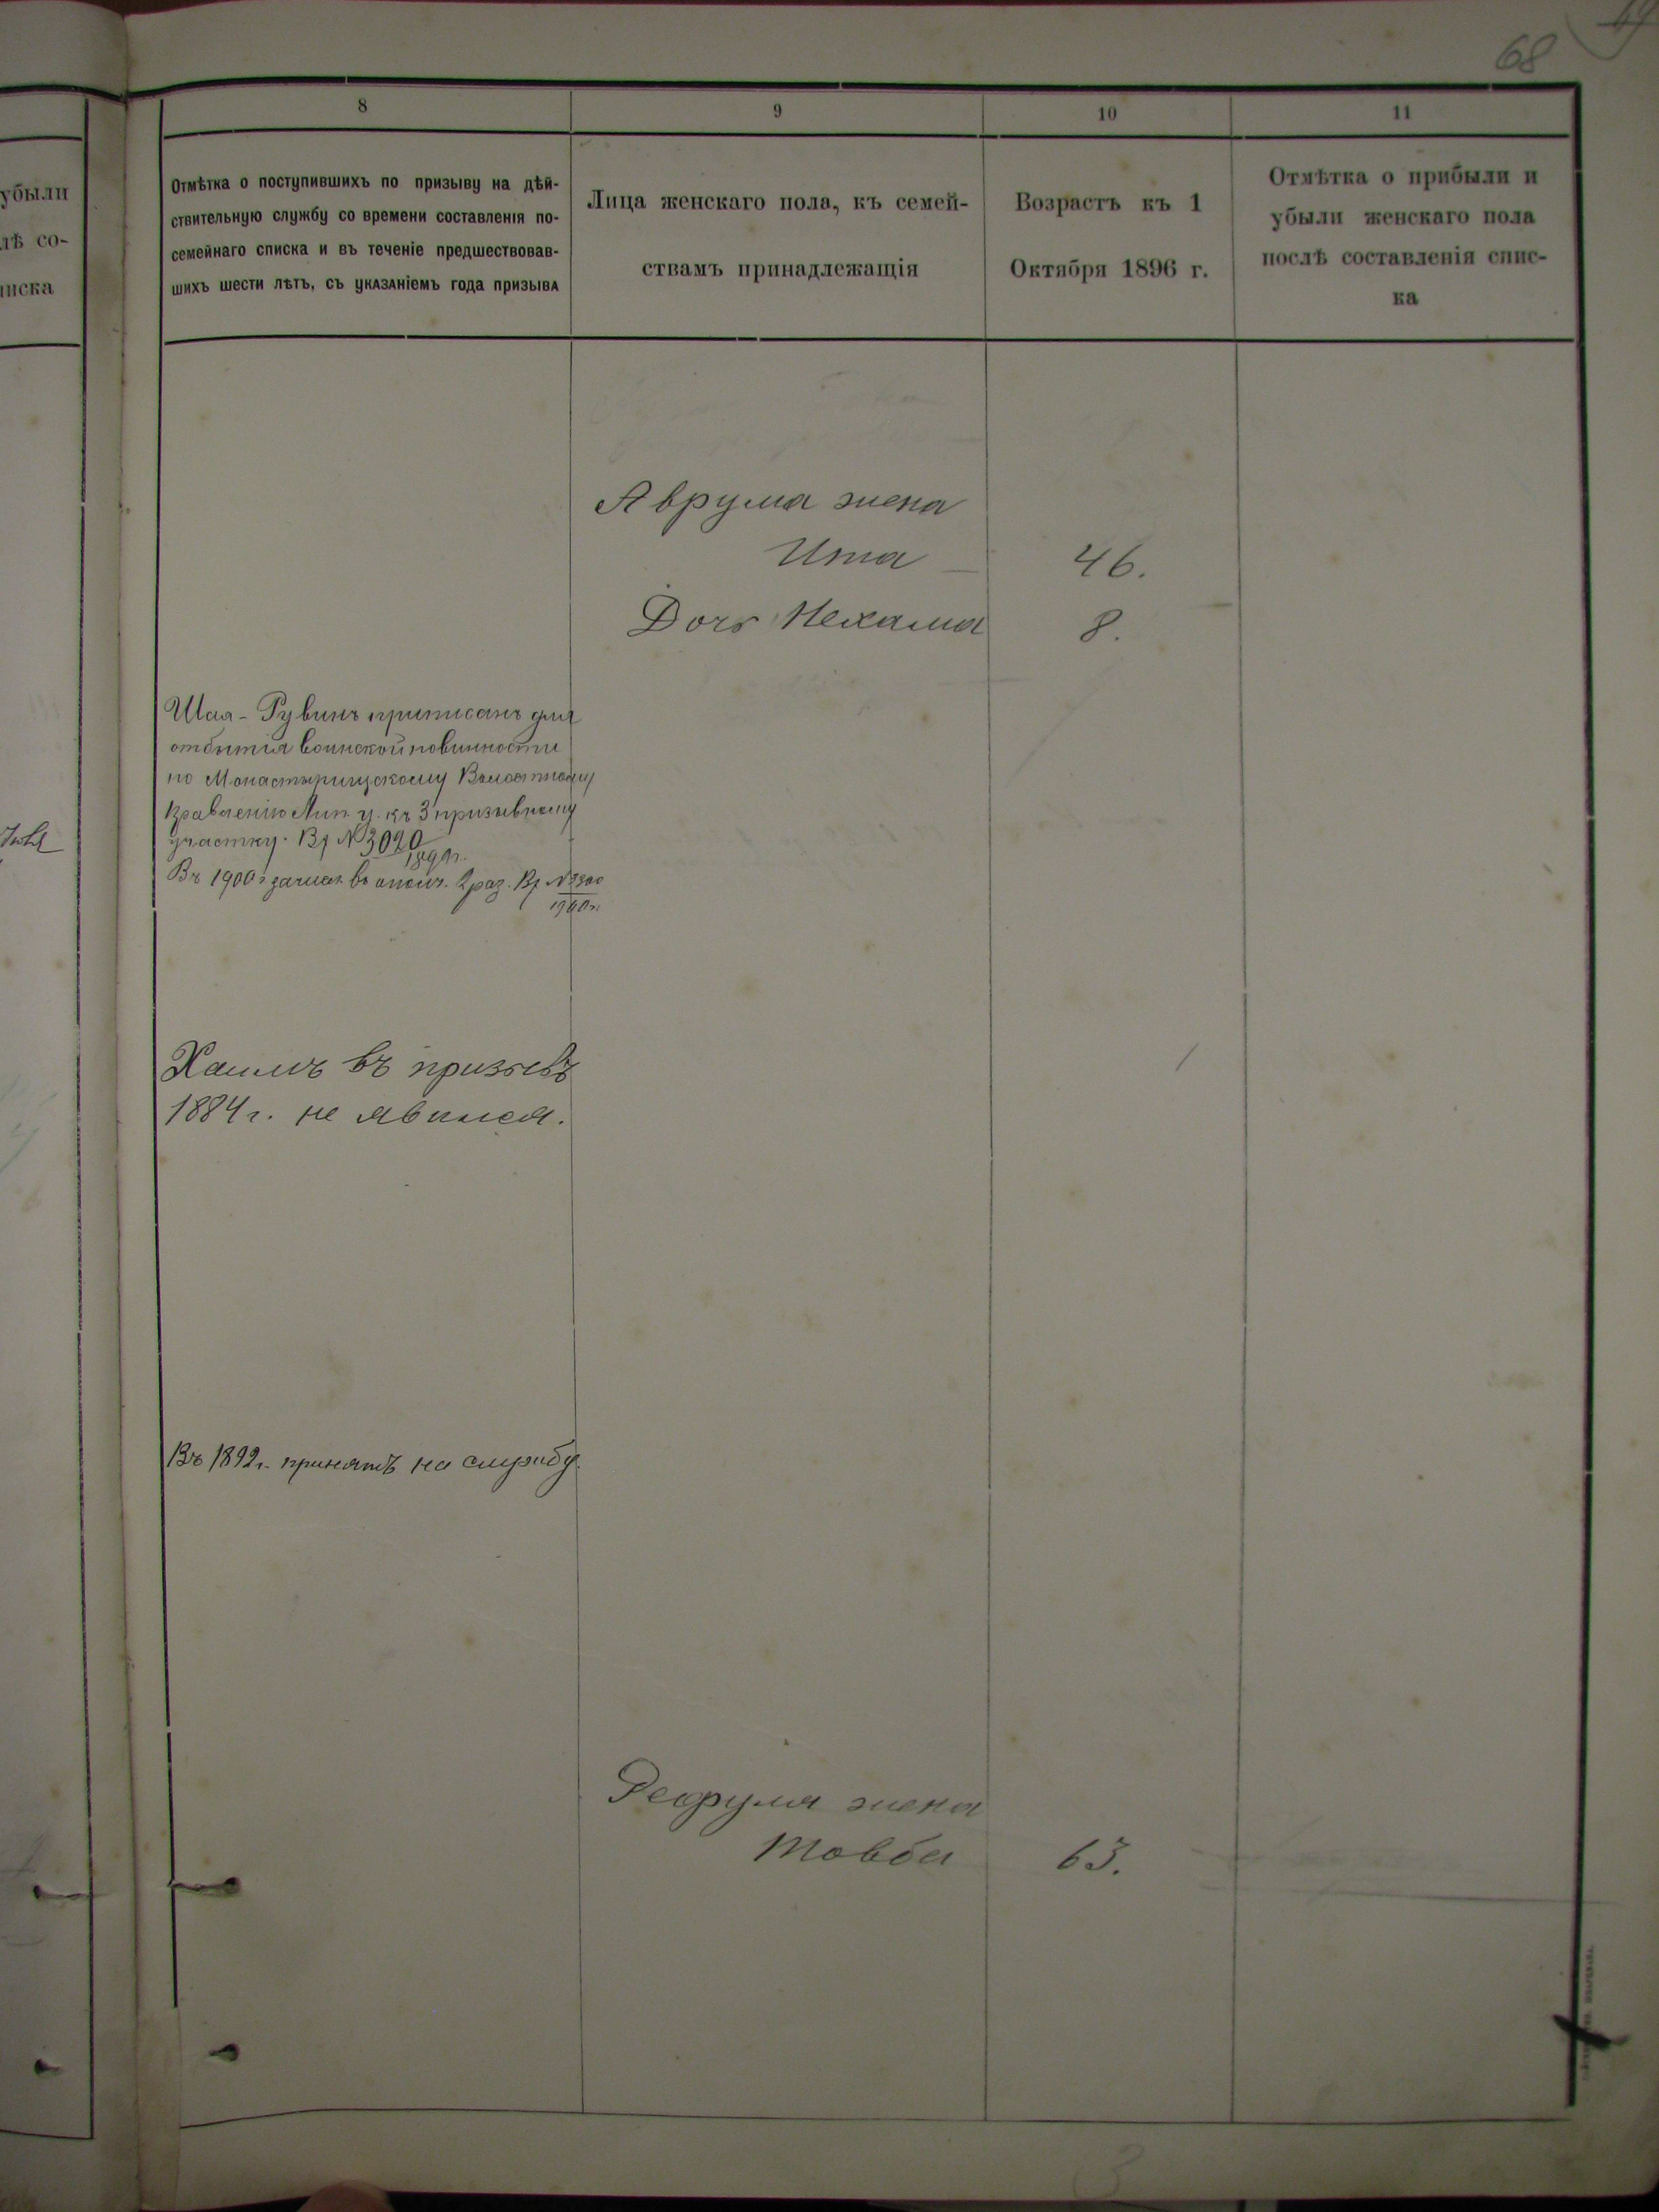 68
8
9
10
11
убыли
лѣ со-
иска
Отмѣтка о поступившихъ по призыву на дѣй-
ствительную службу со времени составленія по-
семейнаго списка и въ теченіе предшествовав-
шихъ шести лѣтъ, съ указаніемъ года призыва
Лица женскаго пола, къ семей-
ствамъ принадлежащія
Возрастъ къ 1
Октября 1896 г.
Отмѣтка о прибыли и
убыли женскаго пола
послѣ составленія спис-
ка
Аврума жена
Ита 46.
Дочь Нехама 8.
Шая-Рувинъ приписанъ для
отбытія воинской повинности
по Монастырищскому Волостному
Правленію Лип. у. къ 3 призывному
участку. Вх №3020
1899г.
Въ 1900г зачисл. въ ополч. 2 раз. Вх №3300
1900г.
Хаимъ въ призывъ
1884 г. не явился.
Въ 1892 г. принятъ на службу.
Рефула жена
Товба 63.